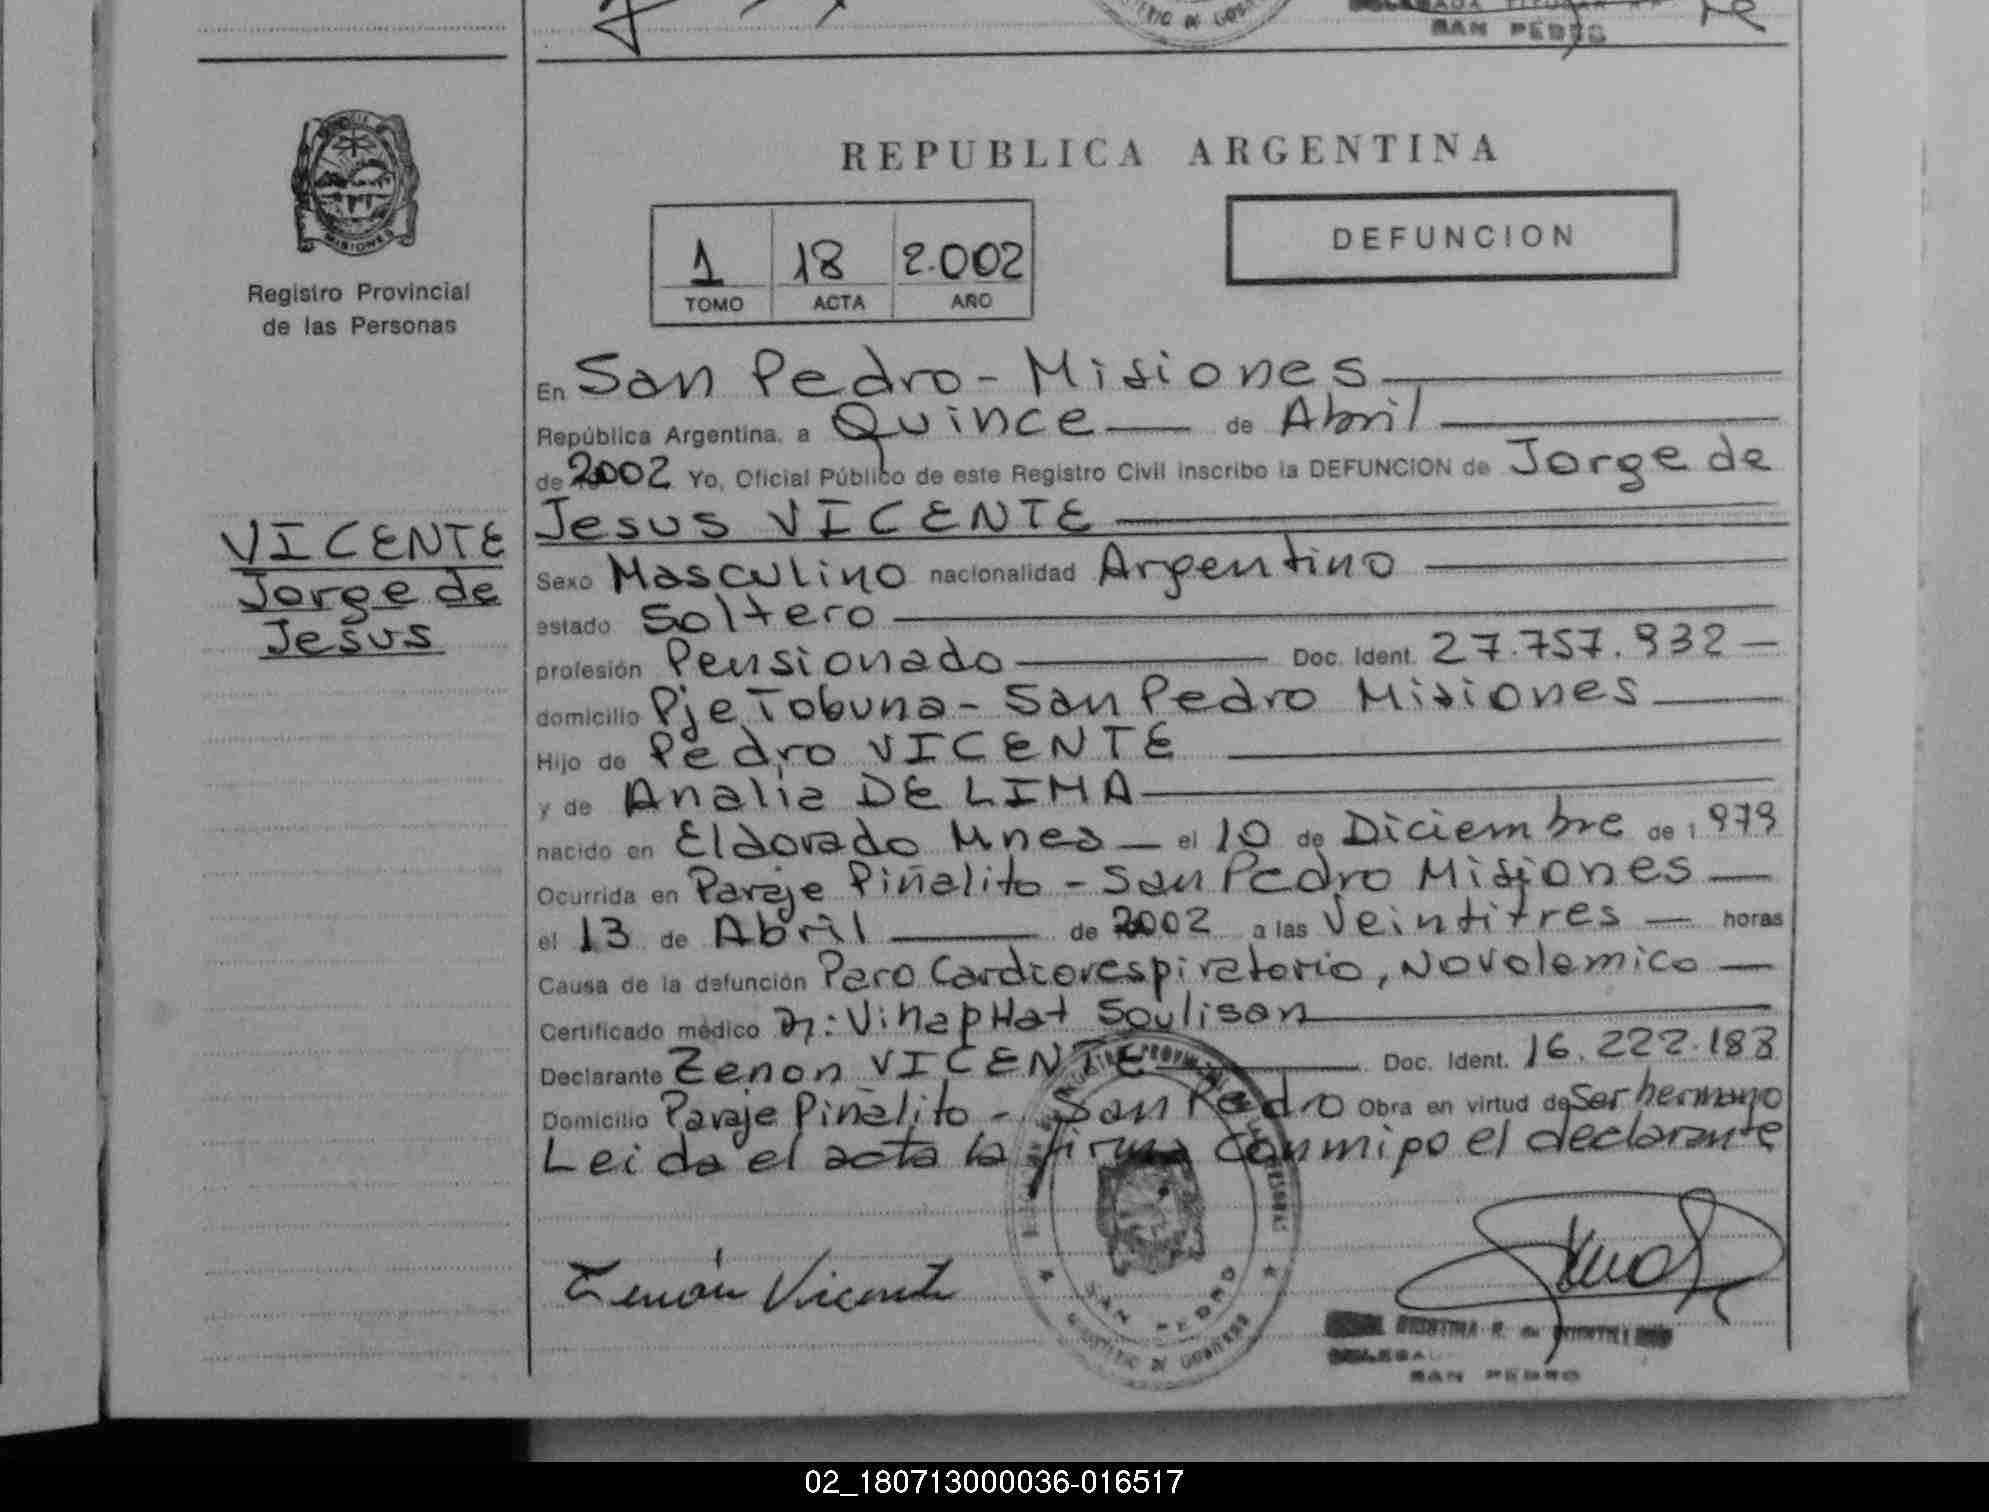 SAN PEDRO
MISIONES
Registro Provincial
de las Personas
REPUBLICA ARGENTINA
1 18 2.002
TOMO ACTA AÑO
DEFUNCION
En San Pedro - Misiones
República Argentina, a Quince de Abril
de 2002 Yo, Oficial Público de este Registro Civil inscribo la DEFUNCION de Jorge de
Jesus VICENTE
VICENTE
Jorge de
Jesus
Sexo Masculino nacionalidad Argentino
estado Soltero
profesión Pensionado Doc. Ident. 27.757.932
domicilio Pje Tobuna - San Pedro Misiones
Hijo de Pedro VICENTE
y de Analia DE LIMA
nacido en Eldorado Mnes el 10 de Diciembre de 1979
Ocurrida en Paraje Piñalito - San Pedro Misiones
el 13 de Abril de 2002 a las Veintitres horas
Causa de la defunción Paro Cardiorespiratorio, Novolemico
Certificado médico Dr: VinapHat Soulisan
Declarante Zenon VICENTE Doc. Ident. 16.222.183
Domicilio Paraje Piñalito - San Pedro Obra en virtud de Ser hermano
Leida el acta la firma conmigo el declarante
Zenón Vicente
SAN PEDRO
MINISTERIO DE GOBIERNO
SAN PEDRO
02_180713000036-016517